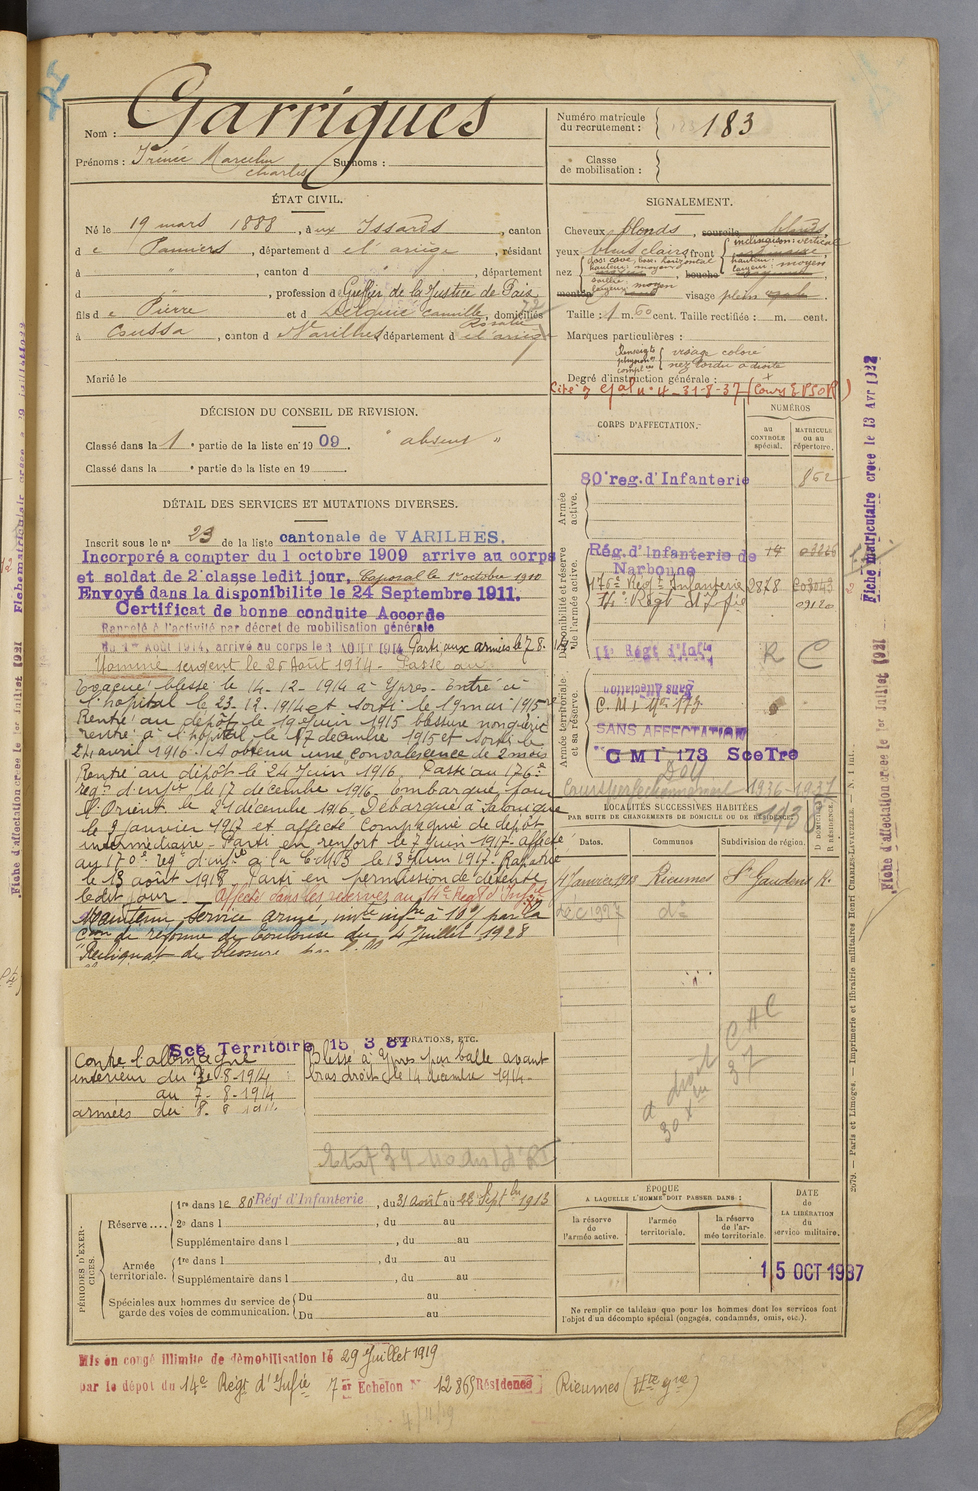 Garrigues
Nom :
Prénoms : Irénée Marcelin Surnoms :
Charles
Numéro matricule du recrutement : 183
Classe de mobilisation :
ÉTAT CIVIL.
Né le 19 mars 1888, à aux Issards, canton
de Pamiers, département de l'ariège, résidant
à " , canton d " , département
d , profession de Greffier de la Justice de Paix
fils de Pierre et d Delquié Camille, domiciliés
Rosalie
à Coussa, canton de Varilhes département de l'ariège
Marié le
SIGNALEMENT.
Cheveux blonds, sourcils
yeux bleus clairs front inclinaison : verticale
hauteur : moyen
largeur : moyen
nez dos : cave, base : horizontal
hauteur : moyen
saillie
largeur moyen
bouche
menton visage plein ovale.
Taille : 1 m. 60 cent. Taille rectifiée : m. cent.
Marques particulières :
Renseigts physion. compl. visage coloré
nez tordu à droite
Degré d'instruction générale :
Cité 3 Cjal n° 4 - 31-8-37 (Cours EPSOR)
DÉCISION DU CONSEIL DE REVISION.
Classé dans la 1 e partie de la liste en 1909. " absent "
Classé dans la e partie de la liste en 19
DÉTAIL DES SERVICES ET MUTATIONS DIVERSES.
Inscrit sous le n° 23 de la liste cantonale de VARILHES.
Incorporé a compter du 1 octobre 1909 arrive au corps
et soldat de 2e classe ledit jour, Caporal le 1er octobre 1910
Envoyé dans la disponibilite le 24 Septembre 1911.
Certificat de bonne conduite Accorde
Rappelé à l'activité par décret de mobilisation générale
du 1er Août 1914, arrivé au corps le 3 AOUT 1914 Parti aux armées le 7 8. 14
Nommé sergent le 25 Août 1914 - Passé au
Evacué blessé le 14-12-1914 à Ypres. Entré à
l'hôpital le 23.12.1914 et sorti le 19 mai 1915
Rentré au dépôt le 19 Juin 1915 blessure non guérie
rentré à l'hôpital le 17 décembre 1915 et sorti le
24 avril 1916. A obtenu une convalescence de 2 mois
Rentré au dépôt le 24 Juin 1916. Passé au 176e
régt d'infie le 17 décembre 1916. Embarqué pour
l'Orient le 21 décembre 1916. Débarqué à Salonique
le 3 janvier 1917 et affecté Compagnie de dépôt
intermédiaire - Parti en renfort le 7 juin 1917 - affecté
au 176e régt d'infie à la C.M.B le 13 Juin 1917. Rapatrié
le 13 août 1918 Parti en permission de détente
ledit jour. Affecté dans les réserves au 14e Regt d'Infie
Maintenu service armé, invte infre à 10% par la
Con de réforme de Toulouse du 4 Juillet 1928
Reliquat de blessure
Sce Territoire 15 3 37
Contre l'allemagne
intérieur du 3-8-1914
au 7-8-1914
armées du 8-8-1914
DÉCORATIONS, ETC.
Blessé à Ypres par balle avant
bras droit le 14 décembre 1914 -
CORPS D'AFFECTATION.
NUMÉROS
AU CONTROLE spécial.
MATRICULE OU AU répertoire.
Armée active.
80e reg. d'Infanterie 862
Disponibilité et réserve de l'armée active.
Rég. d'Infanterie de Narbonne 14
176e Régt Infanterie 2878
14e Régt d'Infie 09120
Armée territoriale et sa réserve.
R C
Sans Affectation
C.M.I. No 173
SANS AFFECTATION
C M I 173 Sce Tre
Cours perfectionnement 1936-1937
LOCALITÉS SUCCESSIVES HABITÉES
PAR SUITE DE CHANGEMENTS DE DOMICILE OU DE RÉSIDENCE.
Dates. Communes Subdivision de région. D DOMICILE R RÉSIDENCE
4 Janvier 1918 Rieumes St Gaudens R.
Dec 1927 do
CAC
37
a droit
PÉRIODES D'EXERCICES.
Réserve.... 1re dans le 80e Régt d'Infanterie, du 31 août au 22 Septbre 1913
2e dans l , du au
Supplémentaire dans l , du au
Armée territoriale. 1re dans l , du au
Supplémentaire dans l , du au
Spéciales aux hommes du service de garde des voies de communication. Du au
Du au
ÉPOQUE
A LAQUELLE L'HOMME DOIT PASSER DANS :
la réserve de l'armée active.
l'armée territoriale.
la réserve de l'armée territoriale.
DATE DE LA LIBÉRATION du service militaire.
15 OCT 1937
Ne remplir ce tableau que pour les hommes dont les services font
l'objet d'un décompte spécial (engagés, condamnés, omis, etc.).
Mis en congé illimité de démobilisation le 29 Juillet 1919
par le dépôt du 14e Régt d'Infie 7e Echelon N° 12865 Résidence Rieumes (Hte Gne)
Fiche matriculaire créée le 13 Avr 1922
Fiche d'affectation créée le 1er Juillet 1921
2679. — Paris et Limoges. — Imprimerie et librairie militaires Henri CHARLES-LAVAUZELLE.